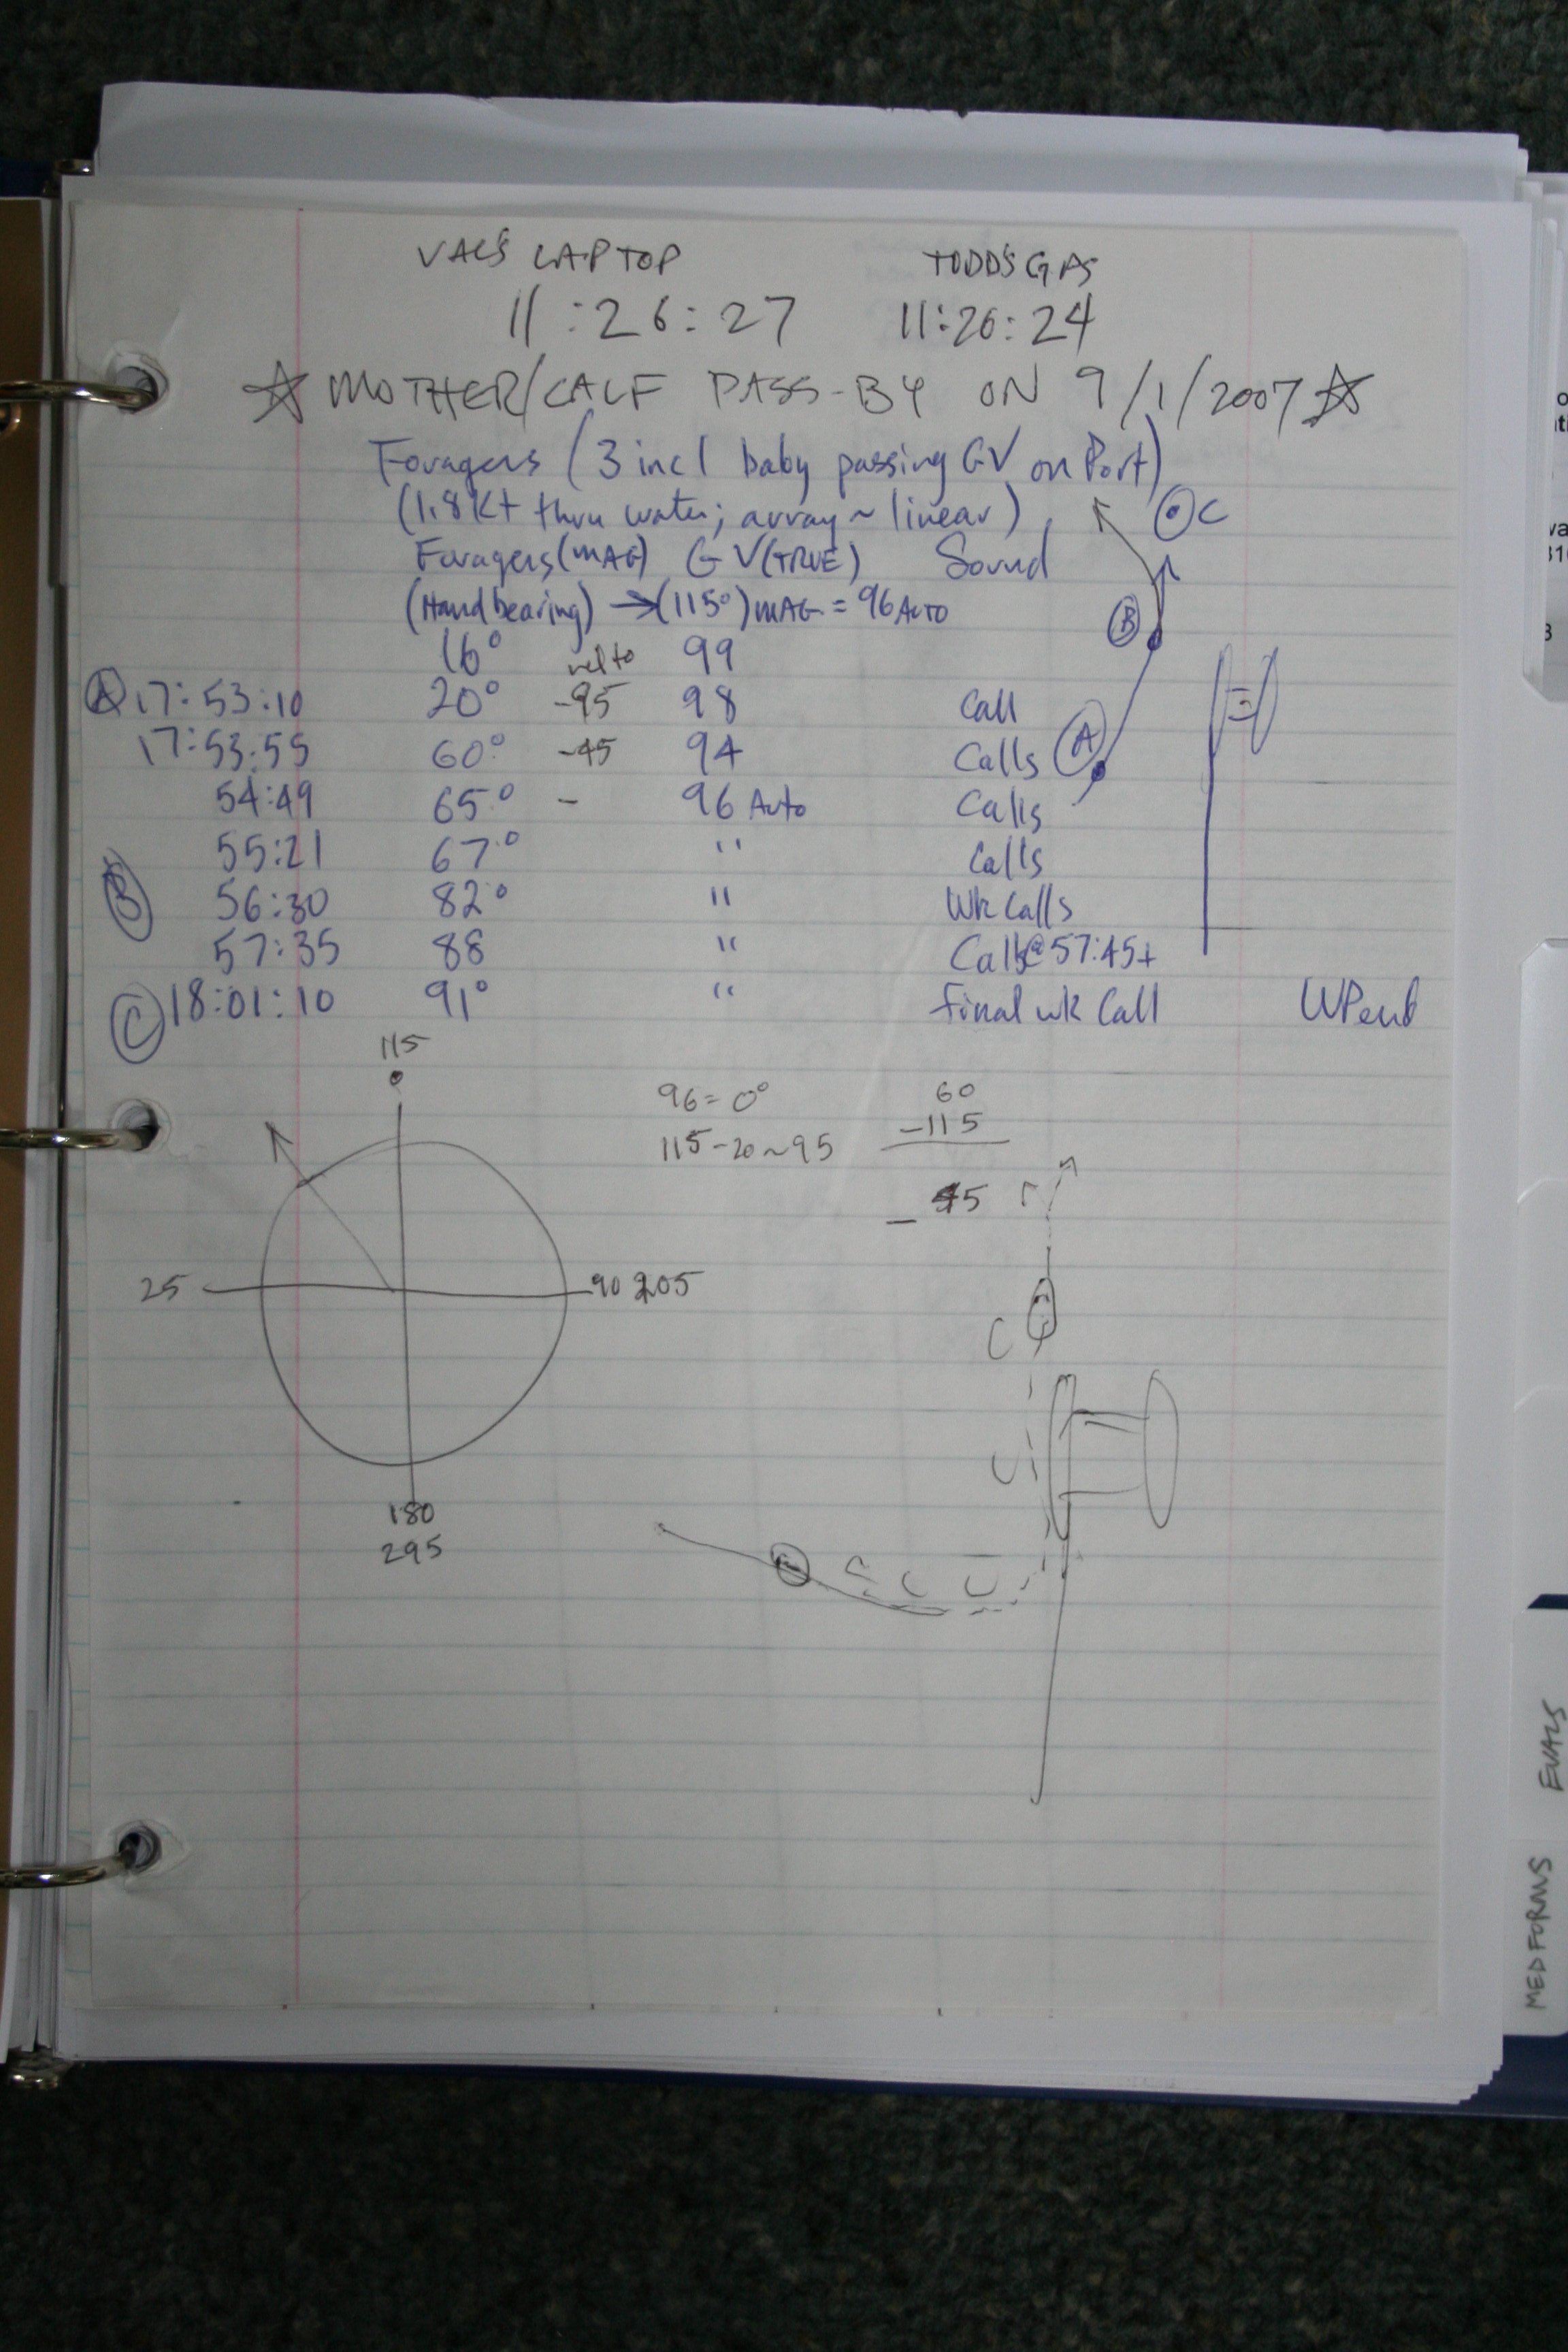 VAL'S LAPTOP TODD'S GPS
11:26:27 11:26:24
☆ MOTHER/CALF PASS-BY ON 9/1/2007 ☆
Foragers (3 incl baby passing GV on Port)
(1.8kt thru water; array ~ linear)
C
Foragers (MAG) GV (TRUE) Sound
(Hand bearing) → (115°) MAG = 96 Auto
B
16° rel to 99
A 17:53:10 20° -95 98 Call
17:53:55 60° -45 94 Calls A
54:49 65° - 96 Auto Calls
55:21 67° " Calls
B 56:30 82° " Wk Calls
57:35 88 " Calls@57:45+
C 18:01:10 91° " Final wk Call WPend
115
96 = 0° 60
115-20~95 -115
-45
25 90 205
C
180
295
EVALS
MED FORMS